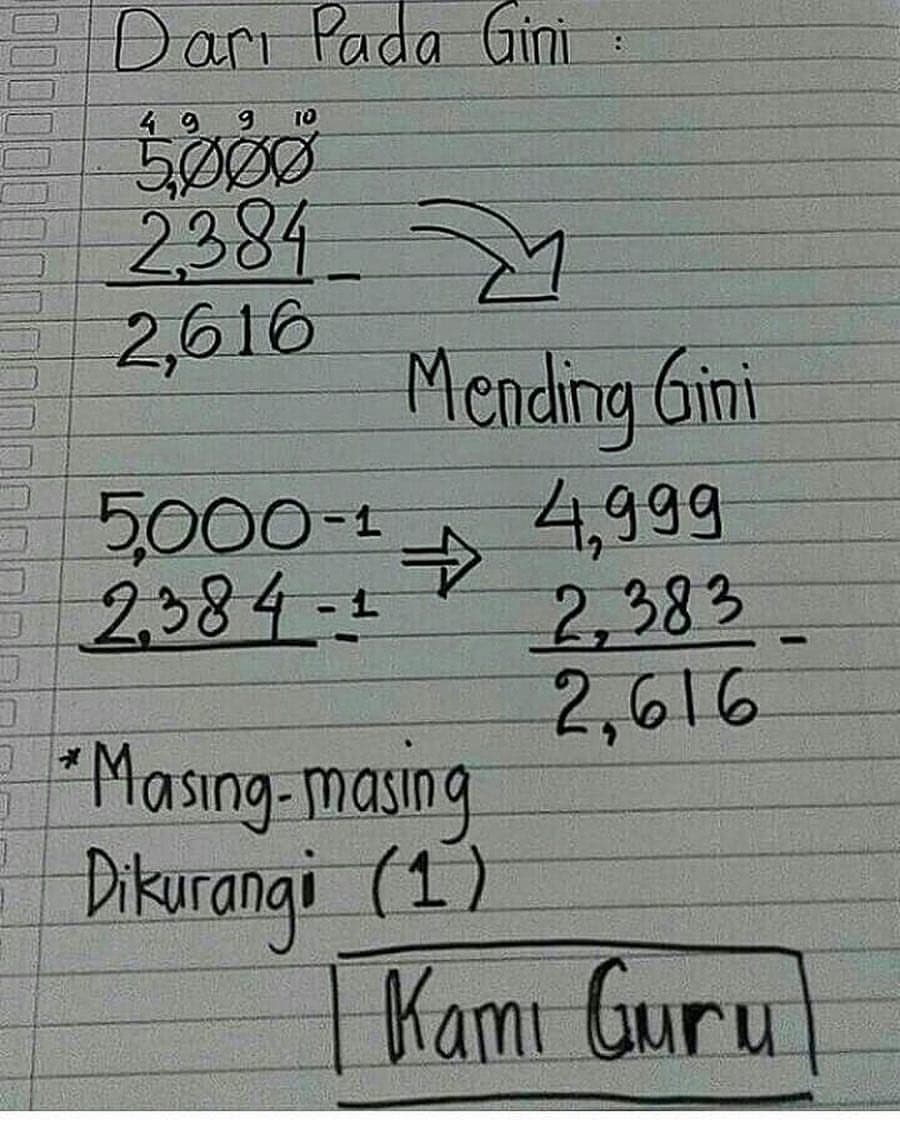 Dari Pada Gini :
4 9 9 10
5,000
2,384 -
2,616
Mending Gini
5,000-1 ⇒ 4,999
2,384-1 - 2,383 -
2,616
*Masing-masing
Dikurangi (1)
Kami Guru